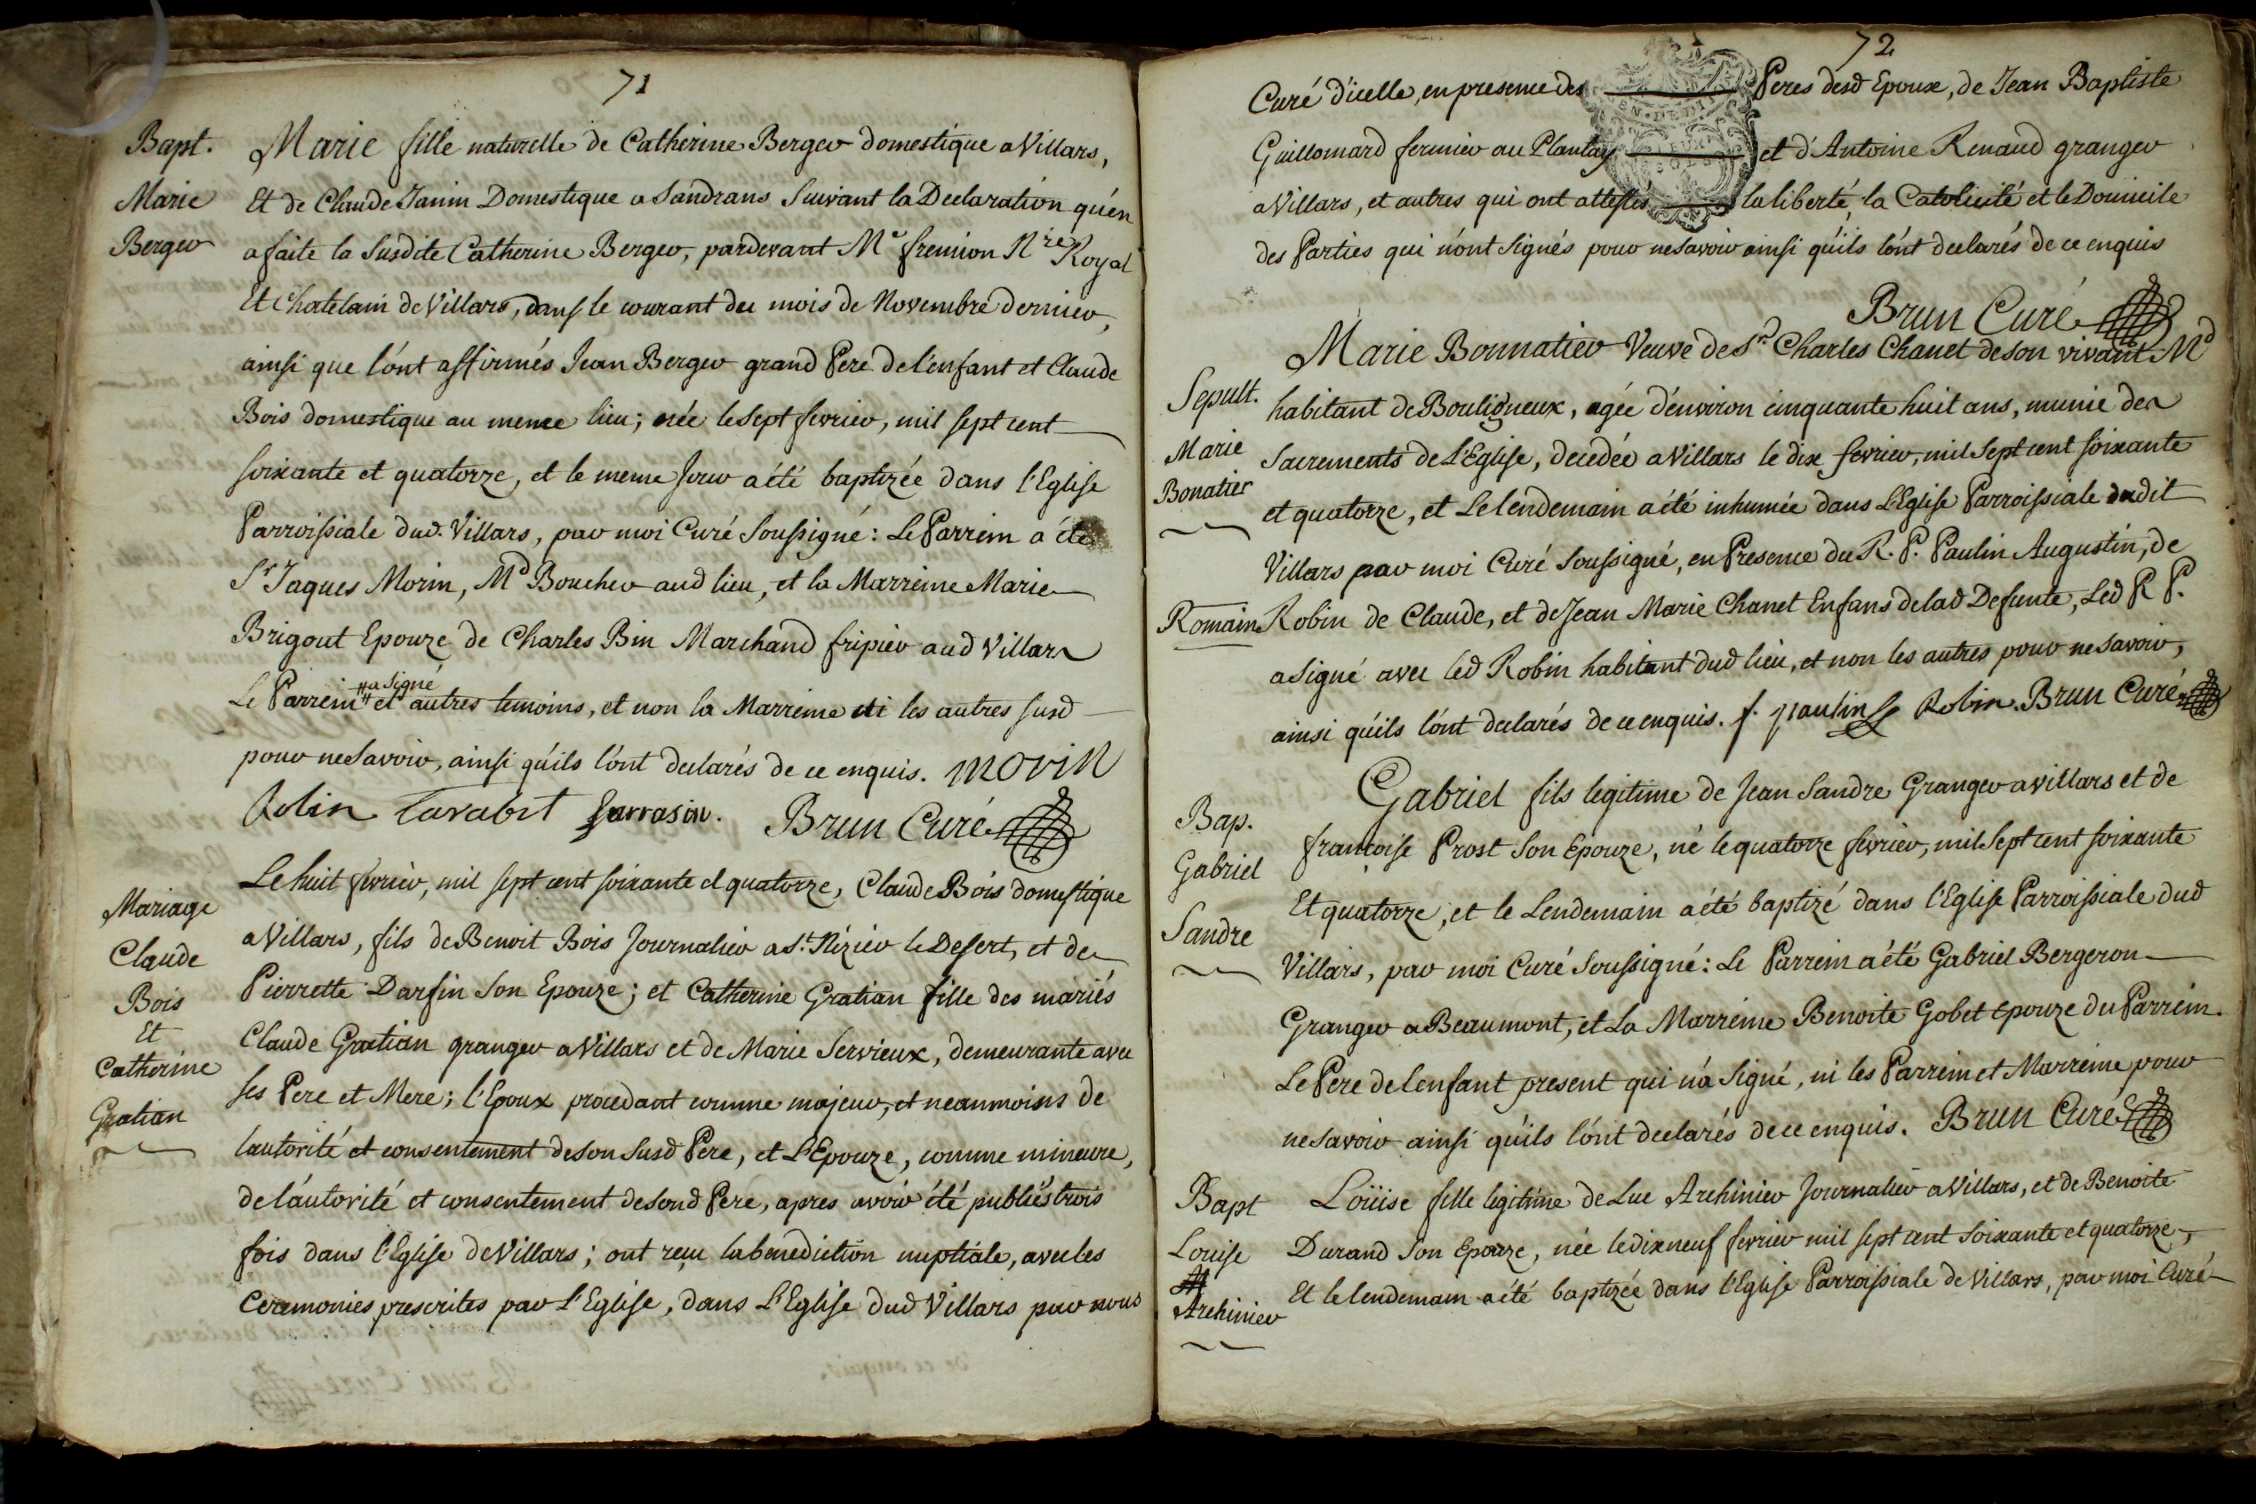 71
Bapt.
Marie
Berger
Marie fille naturelle de Catherine Berger domestique a Villars,
Et de Claude Janin Domestique a Sandrans Suivant la Declaration qu'en
a faite la Susdite Catherine Berger, pardevant Me fremion Nre Royal
Et Chatelain de Villars, dans le courant du mois de Novembre dernier,
ainsi que l'ont affirmés Jean Berger grand Pere de l'enfant et Claude
Bois domestique au meme lieu; née le sept fevrier, mil sept cent
soixante et quatorze, et le meme Jour a été baptizée dans l'Eglise
Parroissiale dud. Villars, par moi Curé Soussigné: Le Parrein a été
Sr Jaques Morin, Md Boucher aud lieu, et la Marreine Marie
Brigout Epouze de Charles Bin Marchand fripier aud Villars
Le Parrein # a signé # et autres temoins, et non la Marreine ni les autres susd
pour ne Savoir, ainsi qu'ils l'ont declarés de ce enquis. Morin
Robin Tavabit Sarrasin. Brun Curé
Mariage
Claude
Bois
Et
Catherine
Gratian
Le huit fevrier, mil sept cent soixante et quatorze, Claude Bois domestique
a Villars, fils de Benoit Bois Journalier a St. Nizier le Desert, et de
Pierrette Darfin Son Epouze; et Catherine Gratian fille des mariés
Claude Gratian granger a Villars et de Marie Servieux, demeurante avec
ses Pere et Mere; l'Epoux procedant comme majeur, et neanmoins de
l'autorité et consentement de son susd Pere, et L'Epouze, comme mineure,
de l'autorité et consentement de sond Pere, apres avoir été publiés trois
fois dans l'Eglise de Villars; ont reçu la benediction nuptiale, avec les
Ceremonies prescrites par L'Eglise, dans L'Eglise dud Villars par nous
72
Curé d'icelle, en presence des Peres desd Epoux, de Jean Baptiste
Guillomard fermier au Plantay et d'Antoine Renaud granger
a Villars, et autres qui ont attestés la liberté, la Catolicité et le Domicile
des Parties qui n'ont signés pour ne savoir ainsi qu'ils l'ont declarés de ce enquis
Brun Curé
Sepult.
Marie
Bonatier
Marie Bonnatier Veuve de Sr Charles Chanet de son vivant Md
habitant de Bouligneux, agée d'environ cinquante huit ans, munie des
Sacrements de L'Eglise, decedée a Villars le dix fevrier, mil sept cent soixante
et quatorze, et Le lendemain a été inhumée dans L'Eglise Parroissiale dudit
Villars par moi Curé Soussigné, en Presence du R. P. Paulin Augustin, de
Romain Robin de Claude, et de Jean Marie Chanet Enfans de lad Defunte, Led R P.
a signé avec led Robin habitant dud lieu, et non les autres pour ne savoir,
ainsi qu'ils l'ont declarés de ce enquis. f. paulin Robin. Brun Curé
Bap.
Gabriel
Sandre
Gabriel fils legitime de Jean Sandre Granger a villars et de
françoise Prost Son Epouze, né le quatorze fevrier, mil sept cent soixante
Et quatorze, et le Lendemain a été baptizé dans l'Eglise Parroissiale dud
Villars, par moi Curé Soussigné: Le Parrein a été Gabriel Bergeron
Granger a Beaumont, et La Marreine Benoite Gobet Epouze du Parrein.
Le Pere de l'enfant present qui n'a signé, ni les Parrein et Marreine pour
ne savoir ainsi qu'ils l'ont declarés de ce enquis. Brun Curé
Bapt
Louise
Archinier
Loüise fille legitime de Luc Archinier Journalier a Villars, et de Benoite
Durand Son Epouze, née le dix neuf fevrier mil sept cent soixante et quatorze,
Et le lendemain a été baptizée dans l'Eglise Parroissiale de Villars, par moi Curé